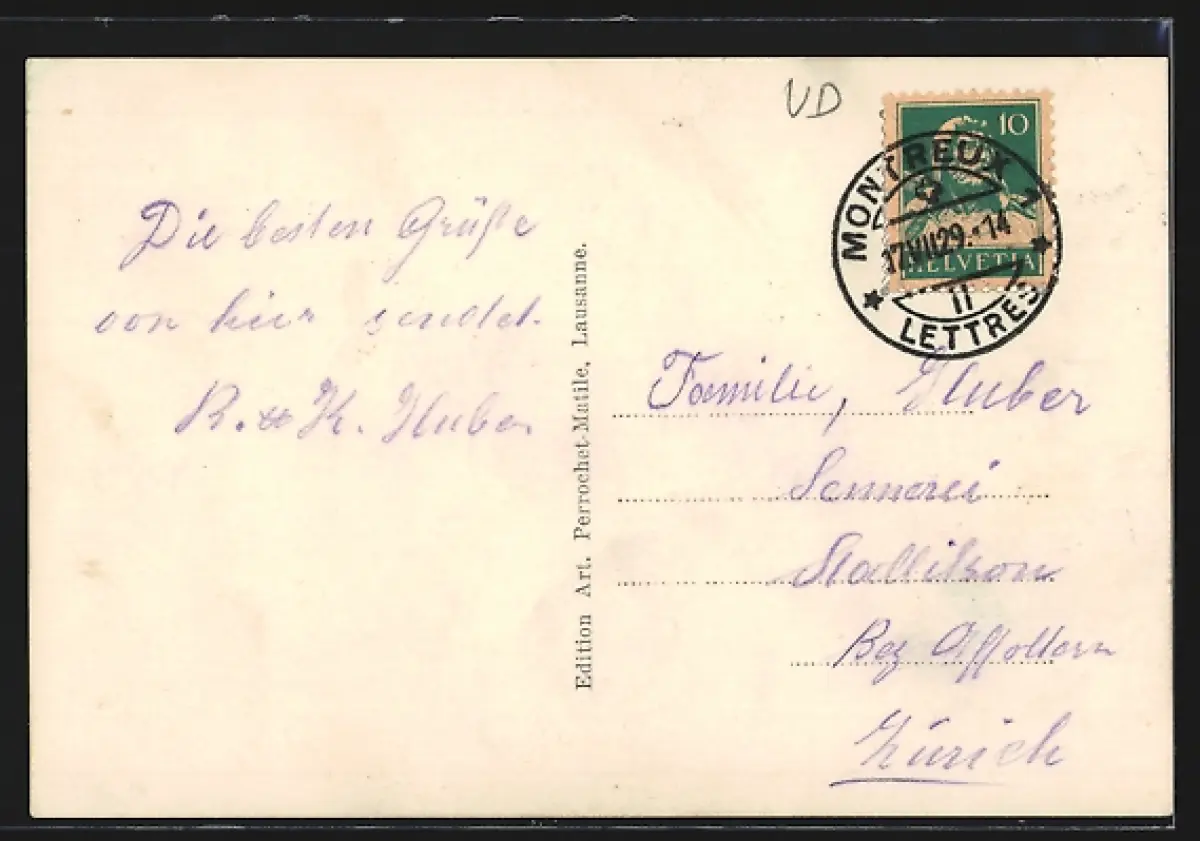 VD
10
HELVETIA
MONTREUX 1
17.VII.29.-14
II
LETTRES
Die besten Grüße
von hier sendet.
R. & K. Huber
Edition Art. Perrochet-Matile, Lausanne.
Familie, Huber
Sennerei
Stallikon
Bez Affoltern
Zürich